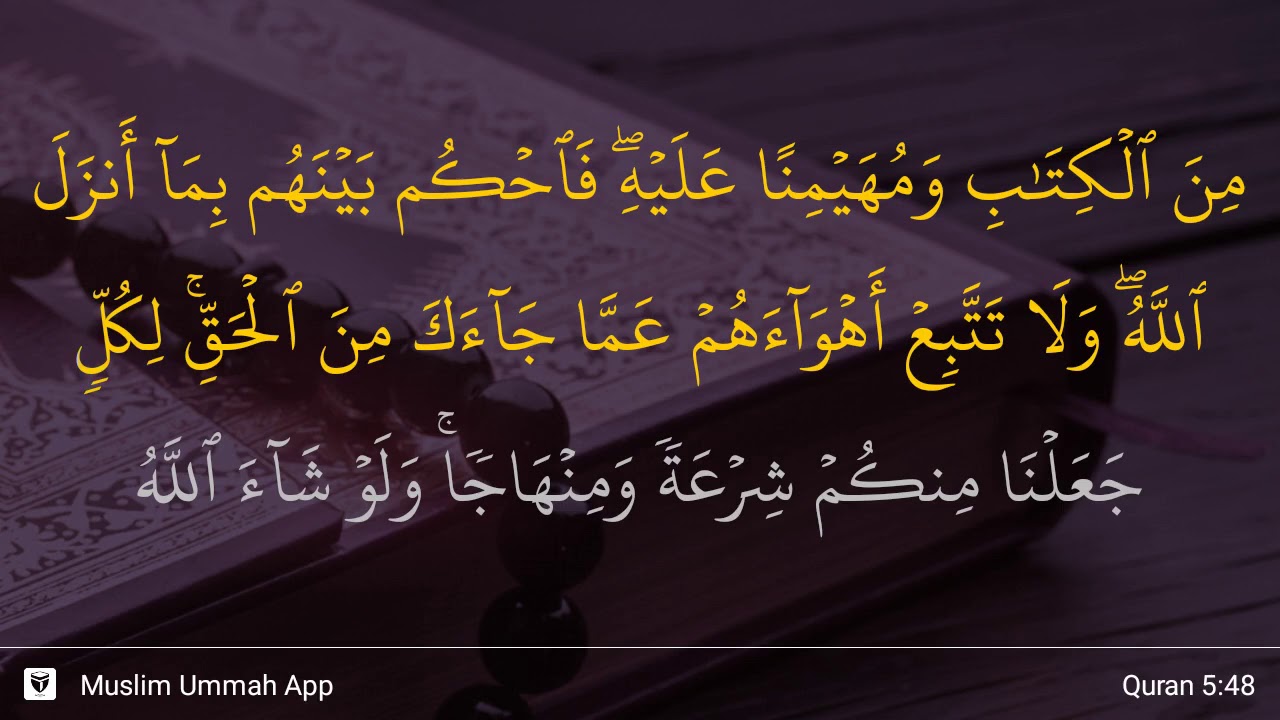 مِنَ ٱلۡكِتَـٰبِ وَمُهَيۡمِنًا عَلَيۡهِۖ فَٱحۡكُم بَيۡنَهُم بِمَآ أَنزَلَ
ٱللَّهُۖ وَلَا تَتَّبِعۡ أَهۡوَآءَهُمۡ عَمَّا جَآءَكَ مِنَ ٱلۡحَقِّۚ لِكُلࣲّ
جَعَلۡنَا مِنكُمۡ شِرۡعَةࣰ وَمِنۡهَاجࣰاۚ وَلَوۡ شَآءَ ٱللَّهُ
Muslim Ummah App
Quran 5:48